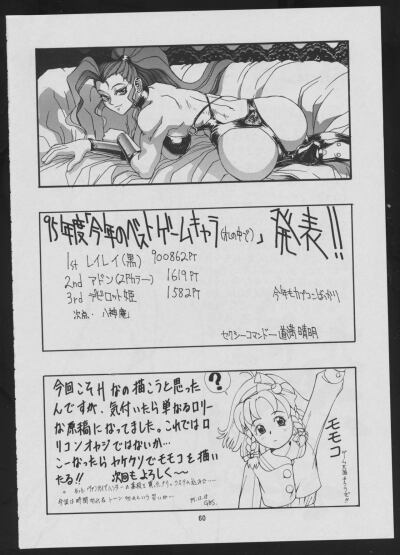 95年度「今年のベストゲームキャラ(私の中で)」発表!!
1st レイレイ(黒) 900862PT
2nd アドン(2Pカラー) 1619PT
3rd デビロット姫 1582PT
次点・八神庵
今年もカプコンばっかり
セクシーコマンドー 道満晴明
今回こそHなの描こうと思った
んですが、気付いたら単なるロリー
な原稿になってました。これではロ
リコンオヤジではないか…
こーなったらヤケクソでモモコを描い
たる!! 次回もよろしく〜
?
モモコ
60